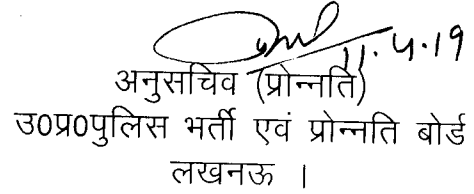 11.4.19
अनुसचिव (प्रोन्नति)
उ0प्र0पुलिस भर्ती एवं प्रोन्नति बोर्ड
लखनऊ ।